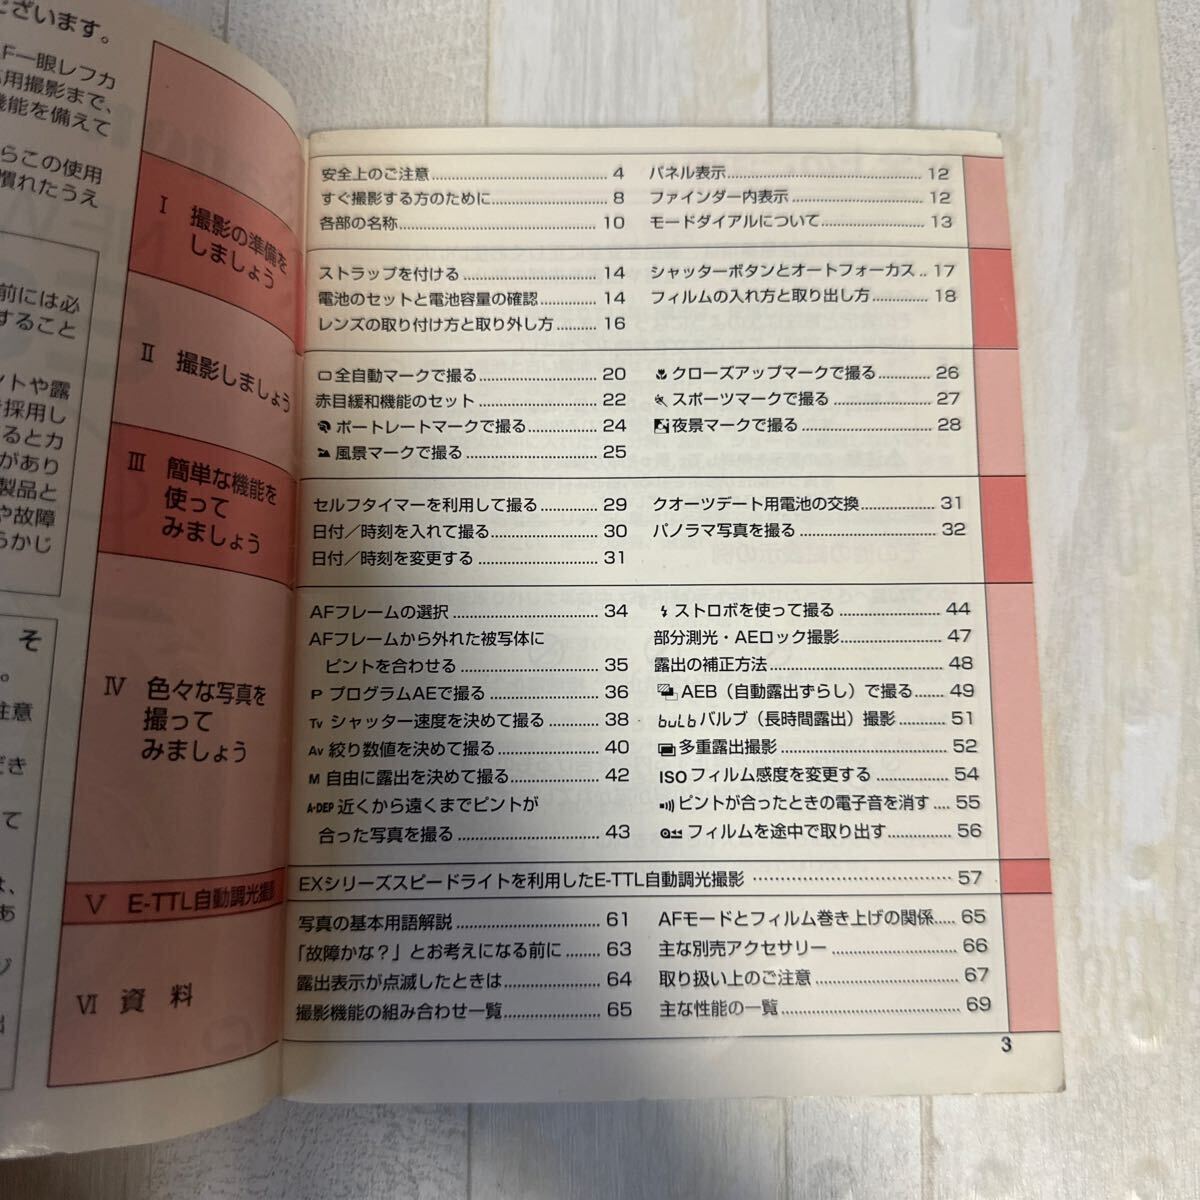 ございます。
AF一眼レフカ
応用撮影まで、
機能を備えて
らこの使用
慣れたうえ
前には必
すること
ントや露
採用し
するとカ
があり
製品と
や故障
らかじ
そ
。
注意
だき
て
は、
あ
ジ
出
I 撮影の準備を
しましょう
II 撮影しましょう
III 簡単な機能を
使って
みましょう
IV 色々な写真を
撮って
みましょう
V E-TTL自動調光撮影
VI 資料
安全上のご注意 4
すぐ撮影する方のために 8
各部の名称 10
パネル表示 12
ファインダー内表示 12
モードダイアルについて 13
ストラップを付ける 14
電池のセットと電池容量の確認 14
レンズの取り付け方と取り外し方 16
シャッターボタンとオートフォーカス 17
フィルムの入れ方と取り出し方 18
全自動マークで撮る 20
赤目緩和機能のセット 22
ポートレートマークで撮る 24
風景マークで撮る 25
クローズアップマークで撮る 26
スポーツマークで撮る 27
夜景マークで撮る 28
セルフタイマーを利用して撮る 29
日付／時刻を入れて撮る 30
日付／時刻を変更する 31
クオーツデート用電池の交換 31
パノラマ写真を撮る 32
AFフレームの選択 34
AFフレームから外れた被写体に
ピントを合わせる 35
P プログラムAEで撮る 36
Tv シャッター速度を決めて撮る 38
Av 絞り数値を決めて撮る 40
M 自由に露出を決めて撮る 42
A-DEP 近くから遠くまでピントが
合った写真を撮る 43
ストロボを使って撮る 44
部分測光・AEロック撮影 47
露出の補正方法 48
AEB（自動露出ずらし）で撮る 49
buLb バルブ（長時間露出）撮影 51
多重露出撮影 52
ISO フィルム感度を変更する 54
ピントが合ったときの電子音を消す 55
フィルムを途中で取り出す 56
EXシリーズスピードライトを利用したE-TTL自動調光撮影 57
写真の基本用語解説 61
「故障かな？」とお考えになる前に 63
露出表示が点滅したときは 64
撮影機能の組み合わせ一覧 65
AFモードとフィルム巻き上げの関係 65
主な別売アクセサリー 66
取り扱い上のご注意 67
主な性能の一覧 69
3